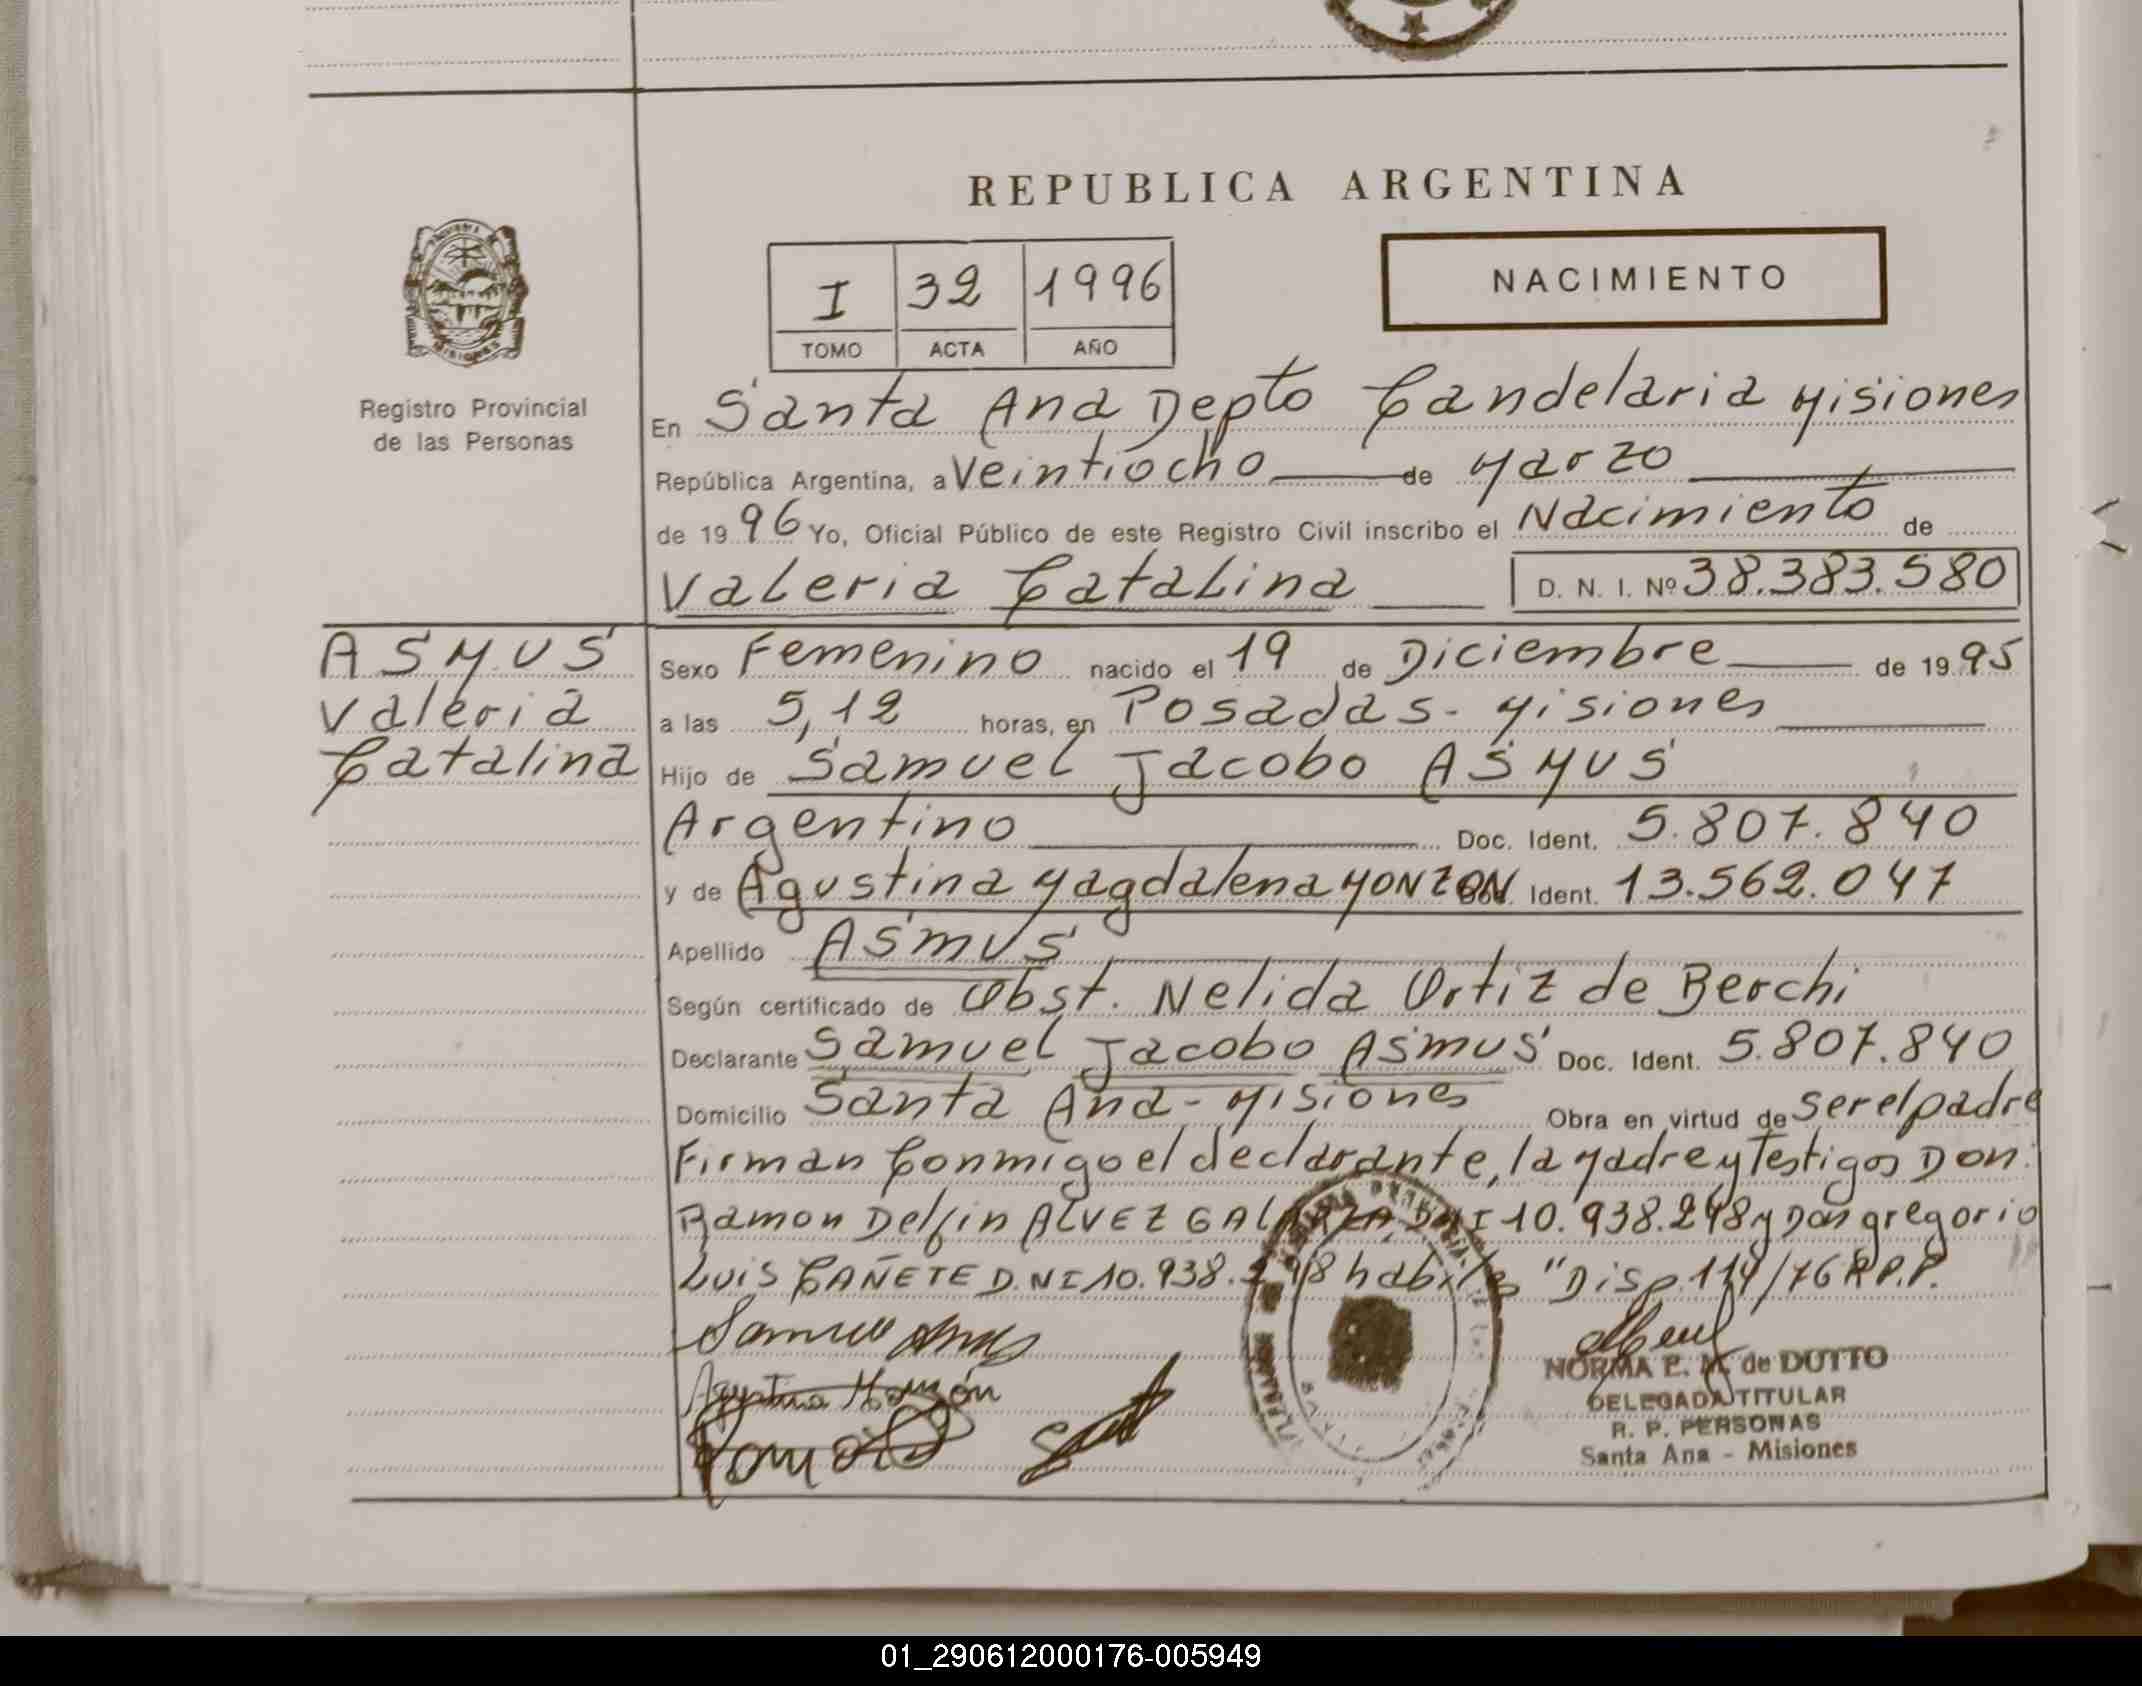 REPUBLICA ARGENTINA
I 32 1996
TOMO ACTA AÑO
NACIMIENTO
MISIONES
Registro Provincial
de las Personas
En Santa Ana Depto Candelaria Misiones
República Argentina, a Veintiocho de Marzo
de 1996 Yo, Oficial Público de este Registro Civil inscribo el Nacimiento de
Valeria Catalina D. N. I. Nº 38.383.580
ASMUS
Valeria
Catalina
Sexo Femenino nacido el 19 de Diciembre de 1995
a las 5,12 horas, en Posadas - Misiones
Hijo de Samuel Jacobo ASMUS
Argentino Doc. Ident. 5.807.840
y de Agustina Magdalena MONZON Doc. Ident. 13.562.047
Apellido ASMUS
Según certificado de Obst. Nelida Ortiz de Berchi
Declarante Samuel Jacobo ASMUS Doc. Ident. 5.807.840
Domicilio Santa Ana - Misiones Obra en virtud de ser el padre
Firman Conmigo el declarante, la Madre y Testigos Don:
Ramon Delfin ALVEZ GALARZA DNI 10.938.248 y Don gregorio
Luis CAÑETE D.NI 10.938. habiles "Disp. 114/76 R.P.P.
Agustina Monzón
NORMA E. M. de DUTTO
DELEGADA TITULAR
R. P. PERSONAS
Santa Ana - Misiones
01_290612000176-005949